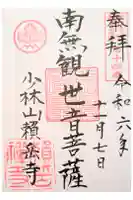 奉拝
令和六年
十一月七日
南無観世音菩薩
小林山頼岳寺